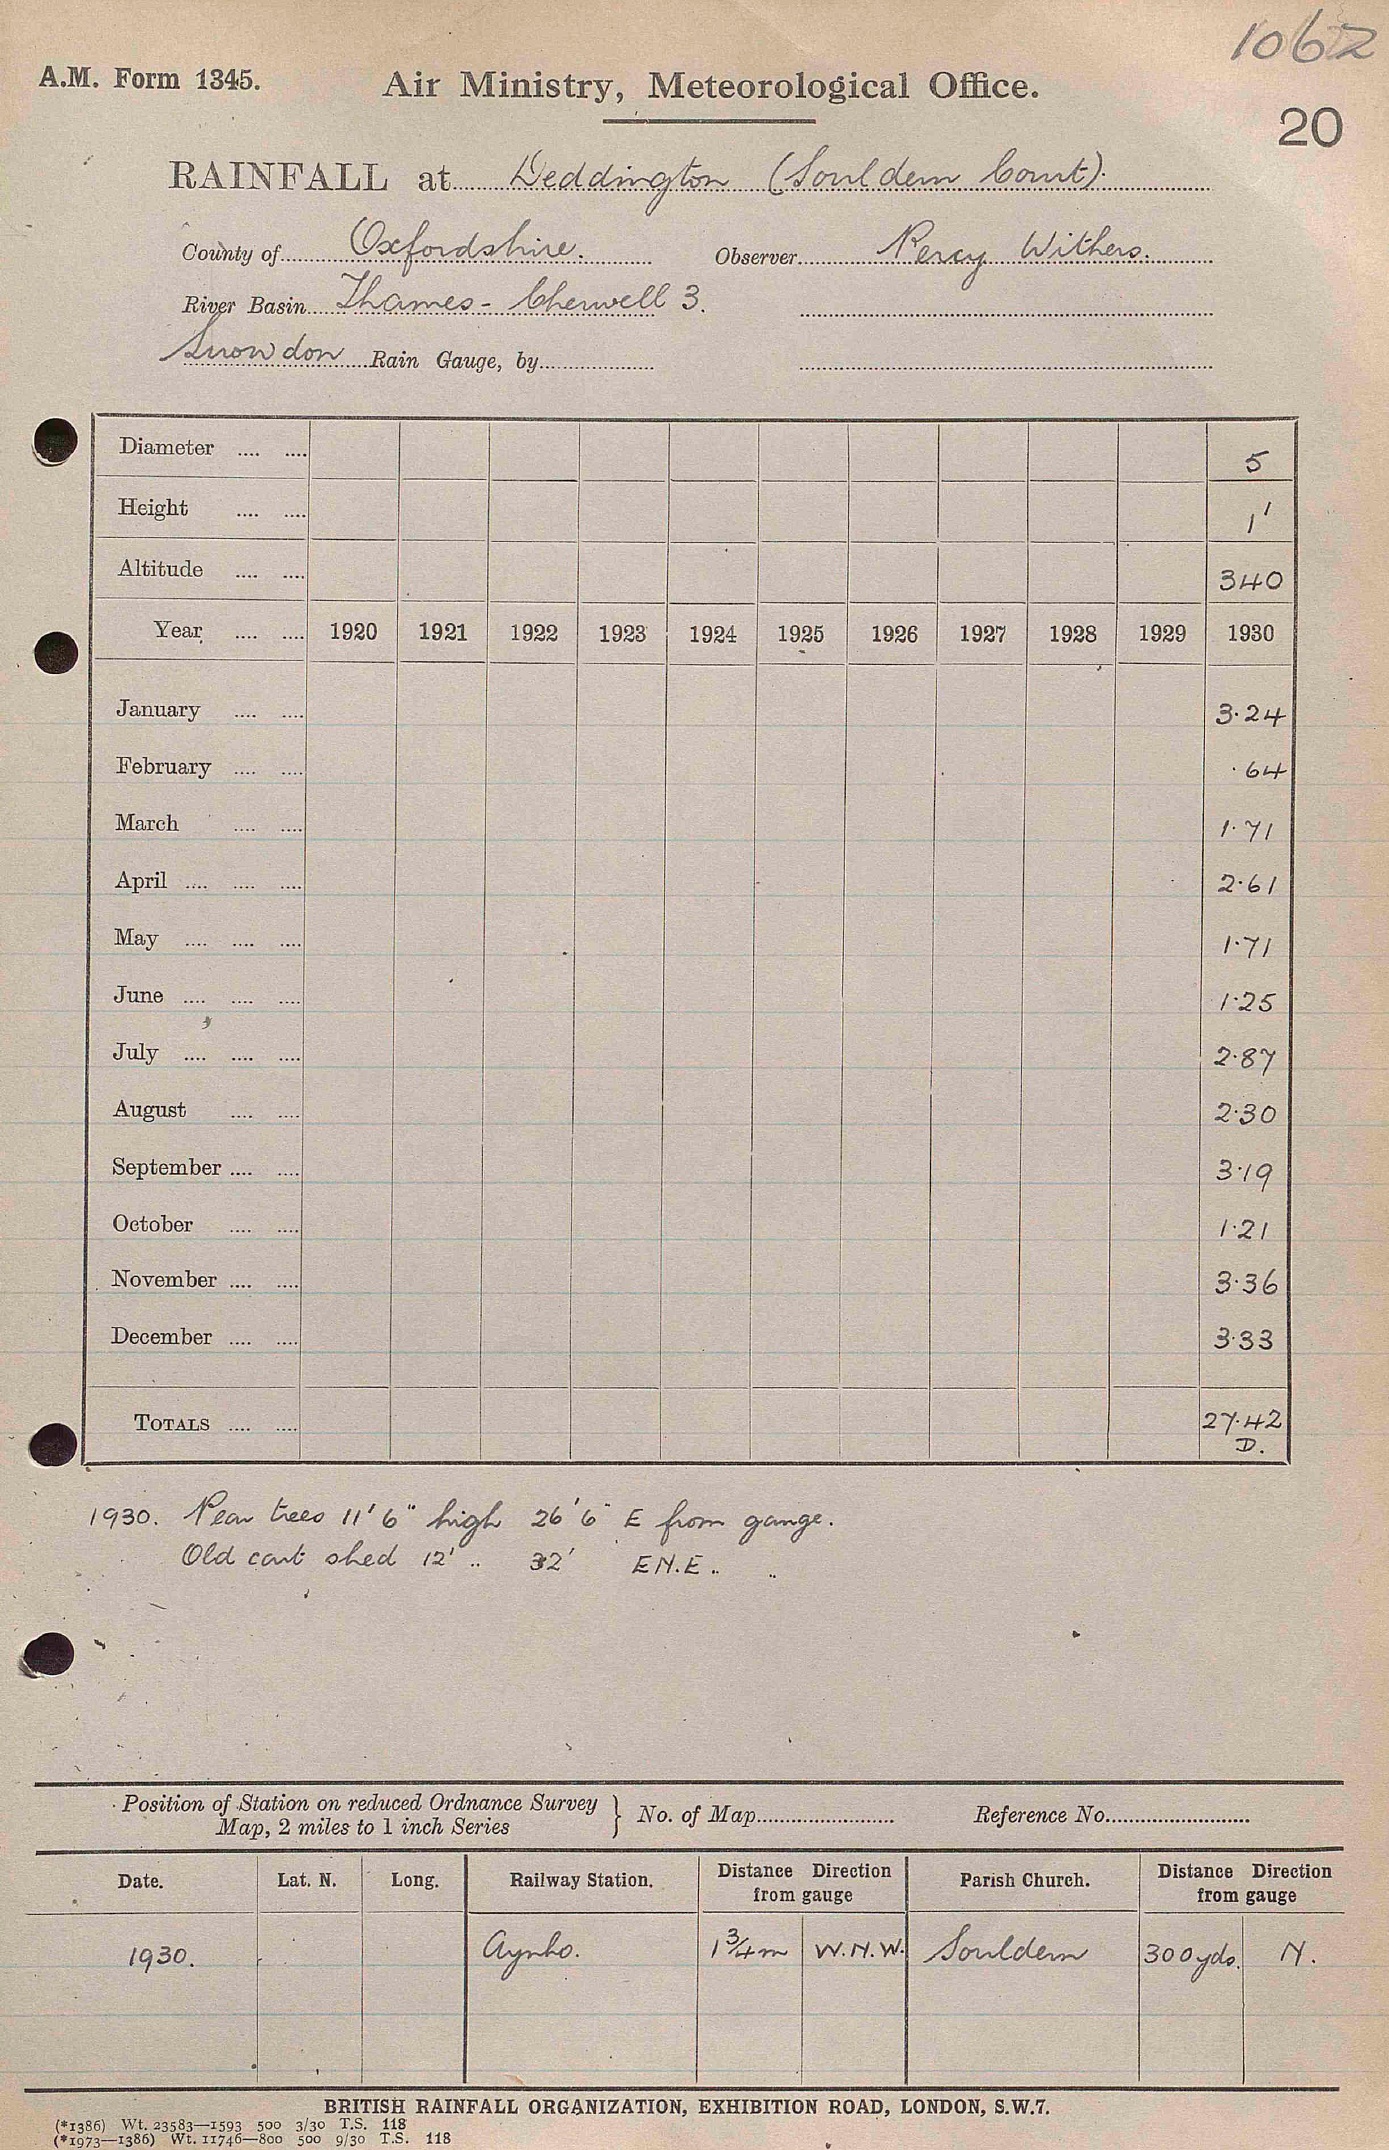 1062
A.M. Form 1345.
Air Ministry, Meteorological Office.
20
RAINFALL at Deddington (Souldern Court).
County of Oxfordshire. Observer Percy Withers.
River Basin Thames - Cherwell 3.
Snowdon Rain Gauge, by
Diameter .... .... 5
Height .... .... 1'
Altitude .... .... 340
Year .... .... 1920 1921 1922 1923 1924 1925 1926 1927 1928 1929 1930
January .... .... 3.24
February .... .... .64
March .... .... 1.71
April .... .... .... 2.61
May .... .... .... 1.71
June .... .... .... 1.25
July .... .... .... 2.87
August .... .... 2.30
September .... .... 3.19
October .... .... 1.21
November .... .... 3.36
December .... .... 3.33
TOTALS .... .... 27.42
D.
1930. Pear trees 11' 6" high 26' 6" E from gauge.
Old cart shed 12' .. 32' E N.E .. ..
Position of Station on reduced Ordnance Survey
Map, 2 miles to 1 inch Series } No. of Map Reference No.
Date. Lat. N. Long. Railway Station. Distance Direction from gauge Parish Church. Distance Direction from gauge
1930. Aynho. 1 3/4 m W.N.W. Souldern 300 yds. N.
BRITISH RAINFALL ORGANIZATION, EXHIBITION ROAD, LONDON, S.W.7.
(*1386) Wt. 23583—1593 500 3/30 T.S. 118
(*1973—1386) Wt. 11746—800 500 9/30 T.S. 118